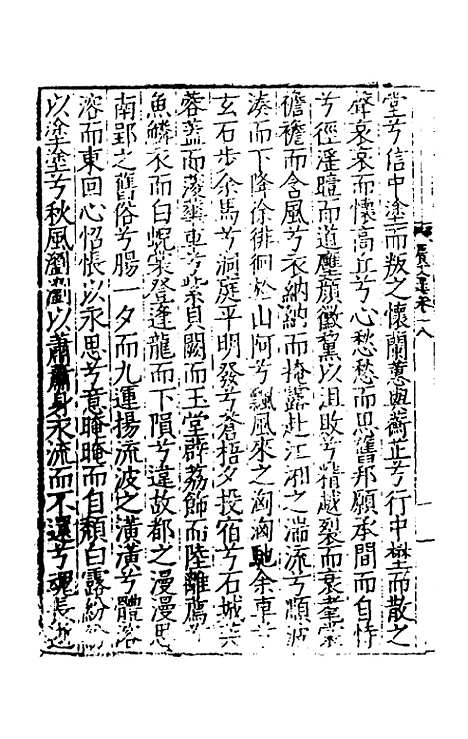 堂兮信中塗而叛之懷蘭蕙與蘅芷兮行中壄而散之
聲哀哀而懷高丘兮心愁愁而思舊邦願承間而自恃
兮徑淫曀而道壅顏黴黧以沮敗兮精越裂而衰耄裳
襜襜而含風兮衣納納而掩露赴江湘之湍流兮順波
湊而下降徐徘徊於山阿兮飄風來之洶洶馳余車兮
玄石步余馬兮洞庭平明發兮蒼梧夕投宿兮石城芙
蓉蓋而蔆華車兮紫貝闕而玉堂薜荔飾而陸離薦兮
魚鱗衣而白蜺裳登逢龍而下隕兮違故都之漫漫思
南郢之舊俗兮腸一夕而九運揚流波之潢潢兮體溶
溶而東回心怊悵以永思兮意晻晻而自頹白露紛紛
以塗塗兮秋風瀏瀏以蕭蕭身永流而不還兮魂長逝